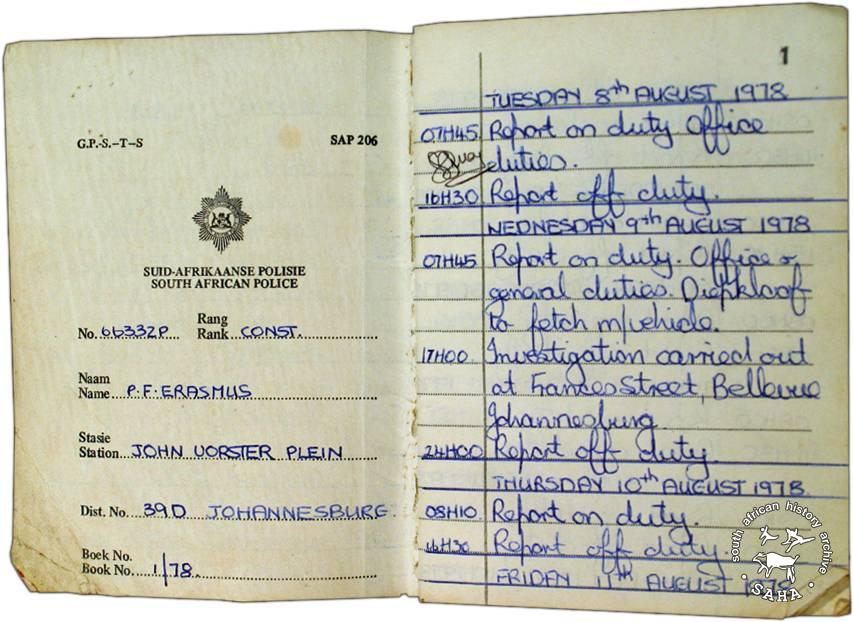 G.P.-S.-T-S SAP 206
SUID-AFRIKAANSE POLISIE
SOUTH AFRICAN POLICE
Rang
No. 66332P Rank CONST.
Naam
Name P.F. ERASMUS
Stasie
Station JOHN VORSTER PLEIN
Dist. No. 39D JOHANNESBURG
Boek No.
Book No. 1/78.
1
TUESDAY 8th AUGUST 1978
07H45 Report on duty Office
duties.
16H30 Report off duty.
WEDNESDAY 9TH AUGUST 1978
07H45 Report on duty. Office &
general duties. Diepkloof
to fetch m/vehicle.
17H00 Investigation carried out
at Frances Street, Bellevue
Johannesburg.
24H00 Report off duty.
THURSDAY 10th AUGUST 1978
08H10. Report on duty.
16H30 Report off duty.
FRIDAY 11th AUGUST 1978
south african history archive
SAHA